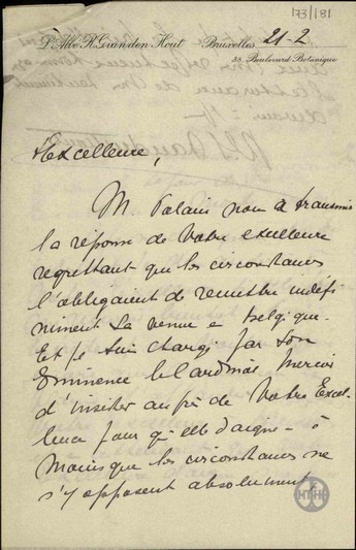 173/181
L'Abbé R. G. van den Hout Bruxelles, 21-2
33, Boulevard Botanique
Excellence,
M. Palais nous a transmis
la réponse de Votre Excellence
regrettant que les circonstances
l'obligeaient de remettre indéfi
niment sa venue e Belgique.
Et je suis chargé par son
Eminence le Cardinal Mercier
d'insister auprès de Votre Excel-
lence pour qu'elle daigne - à
moins que les circonstances ne
s'y opposent absolument